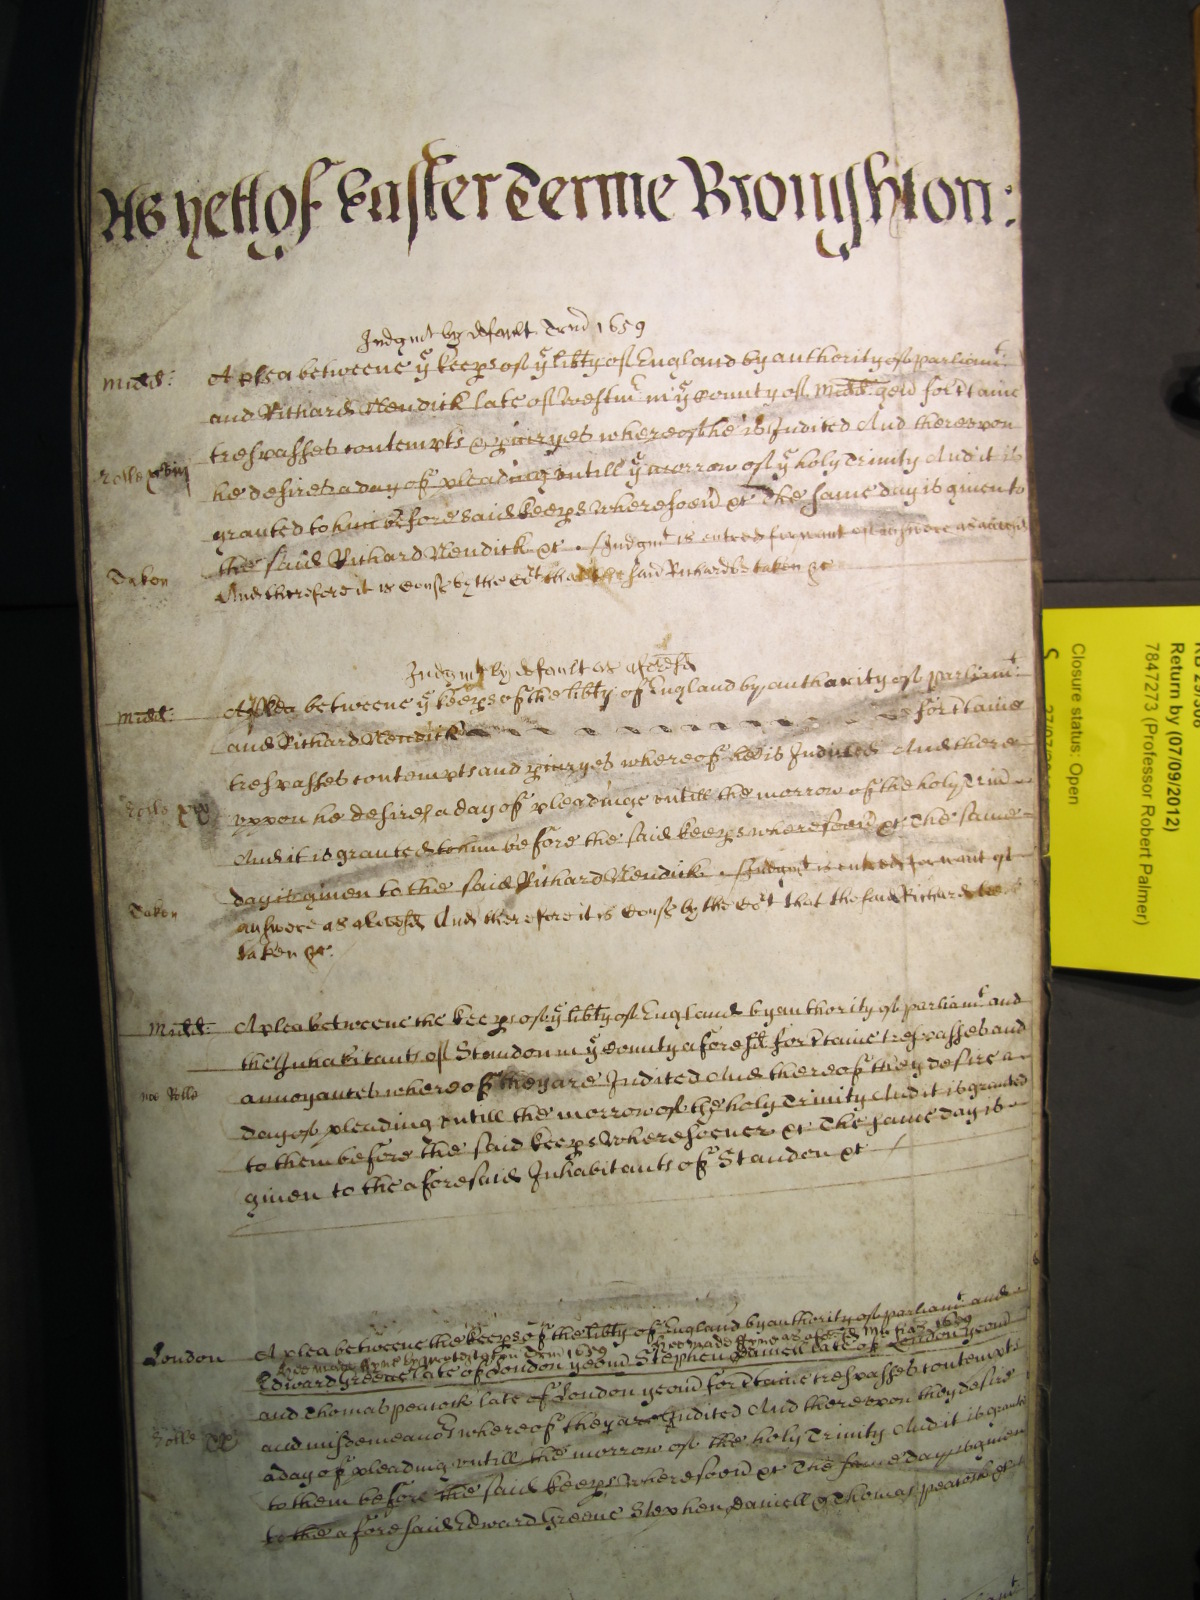 As yett of Easter Terme Broughton:
Judgmt by default Trin 1659
Midd: A plea betweene ye keeps of ye libty of England by authority of parliamt
and Richard Nendick late of Westmr in ye County of Midd gen for ctaine
trespasses contempts & iniuryes whereof he is Indited And therevpon
Rolle xviij he desires a day of pleading vntill ye morrow of ye holy Trinity And it is
granted to him before said keeps wheresoeu &c The same day is giuen to
the said Richard Nendick &c. Judgmt is entred for want of answere as aforesd
Taken And therefore it is Cons by the Cot that the said Richard be taken &c
Judgmt by default as aforesd
Midd: A plea betweene ye keeps of the libty of England by authority of parliamt
and Richard Nendick for ctaine
trespasses contempts and iniuryes whereof hee is Indited And there
Rolle xix vppon he desires a day of pleadinge vntill the morrow of the holy Trin
And it is granted to him before the said keeps wheresoeu &c The same
day is giuen to the said Richard Nendick. Judgmt is entred for want of
Taken answere as aforesd And therefore it is Cons by the Cot that the said Richard bee
taken &c.
Midd: A plea betweene the keeps of ye libty of England by authority of parliamt and
the Inhabitants of Standon in ye County aforesd for ctaine trespasses and
noe Rolle annoyantes whereof they are Indited And thereof they desire a
day of pleading vntill the morrow of the holy Trinity And it is granted
to them before the said keeps Wheresoeuer &c The same day is
giuen to the aforesaid Inhabitants of Standon &c
London A plea betweene the keeps of the libty of England by authority of parliamt and
hee made fyne by protestaton Trin 1659 hee made fyne as aforesd Mich 1659
Edward Greene late of London yeom Stephen Daniell late of London yeom
and Thomas peacock late of London yeom for ctaine trespasses contempts
and misdemeanors whereof they are Indited And therevpon they desire
Rolle xx a day of pleading vntill the morrow of the holy Trinity And it is granted
to them before the said keeps Wheresoeu &c The same day is giuen
to the aforesaid Edward Greene Stephen Daniell & Thomas peacock &c
Closure status: Open
27/07/
Return by (07/09/2012)
7847273 (Professor Robert Palmer)